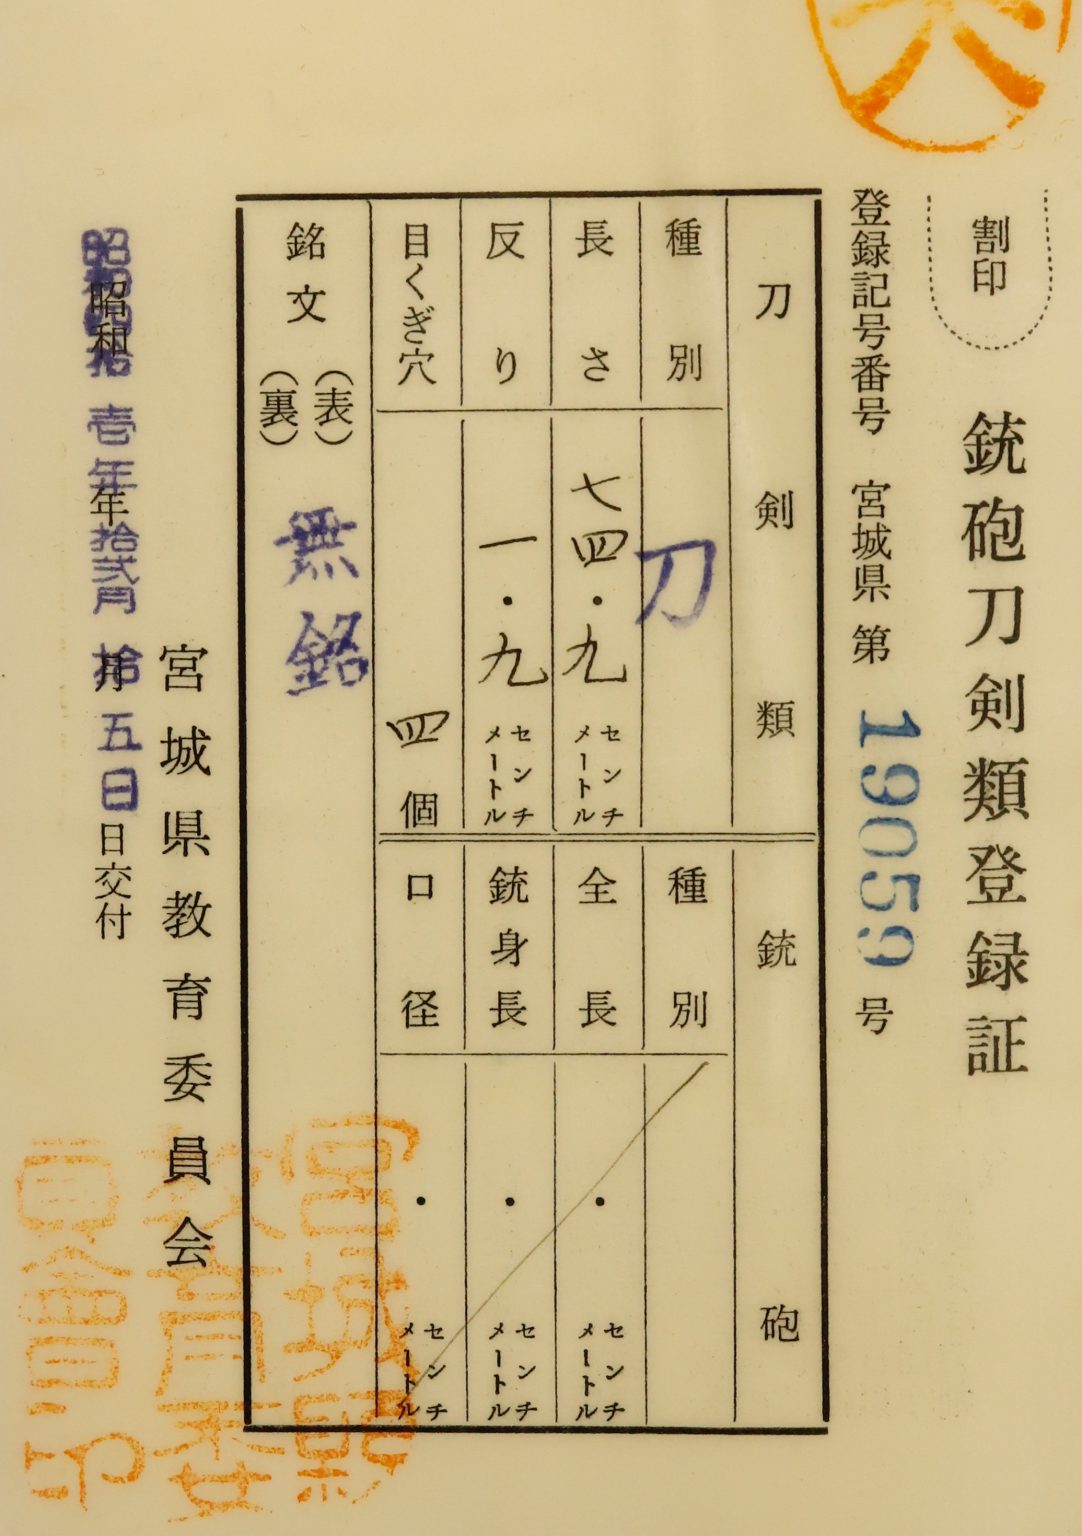 割印
銃砲刀剣類登録証
登録記号番号 宮城県 第 19059 号
刀剣類
種別 刀
長さ 七四・九 センチメートル
反り 一・九 センチメートル
目くぎ穴 四個
銘文 (表) (裏) 無銘
銃砲
種別
全長 ・ センチメートル
銃身長 ・ センチメートル
口径 ・ センチメートル
宮城県教育委員会
昭和 壱年 年 拾弐月 月 拾五日 日交付
宮城縣
教育委
員會印